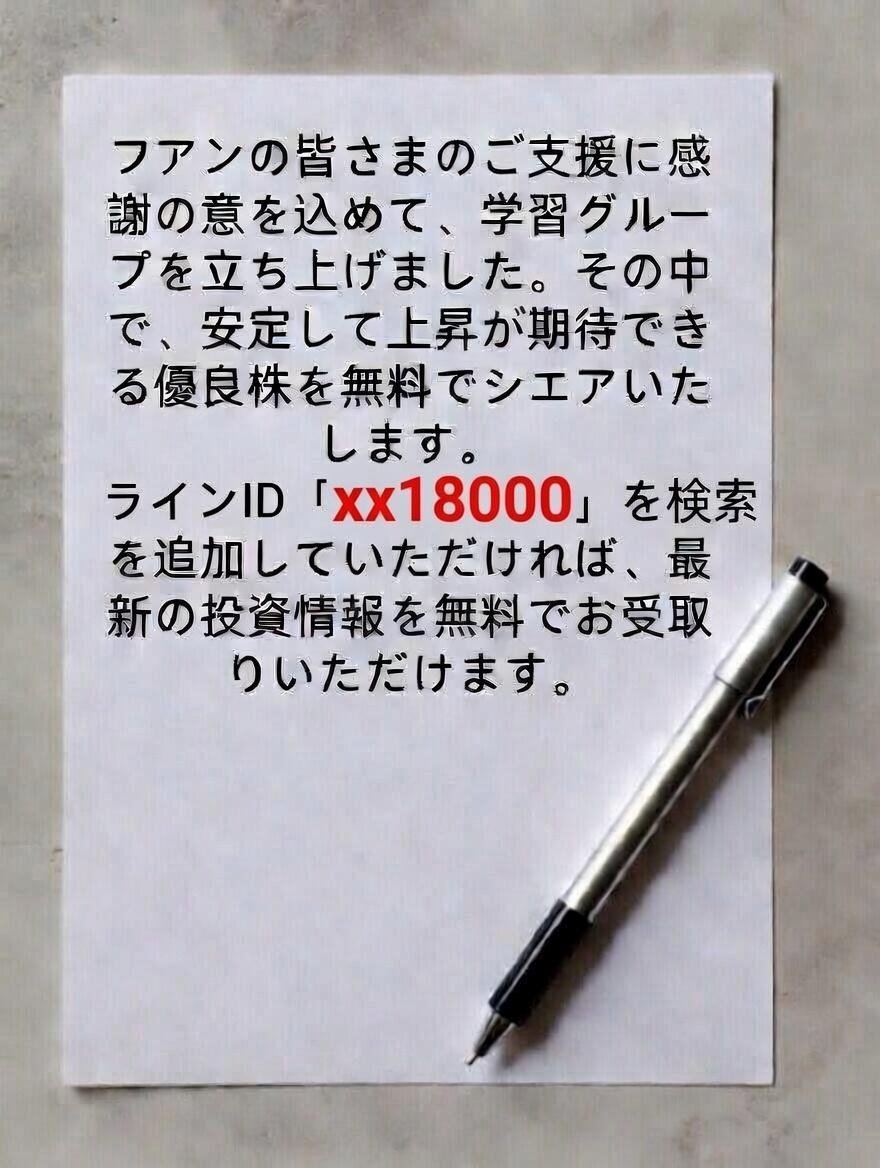 フアンの皆さまのご支援に感
謝の意を込めて、学習グルー
プを立ち上げました。その中
で、安定して上昇が期待でき
る優良株を無料でシエアいた
します。
ラインID「xx18000」を検索
を追加していただければ、最
新の投資情報を無料でお受取
りいただけます。